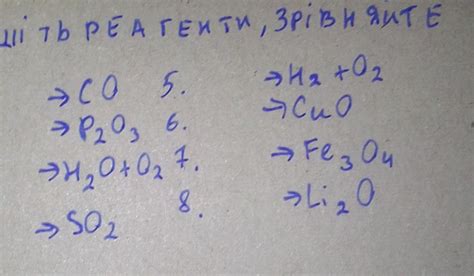 шіть реагенти, зрівняйте
→ CO 5. → H₂ + O₂
→ P₂O₃ 6. → CuO
→ H₂O + O₂ 7. → Fe₃O₄
→ SO₂ 8. → Li₂O